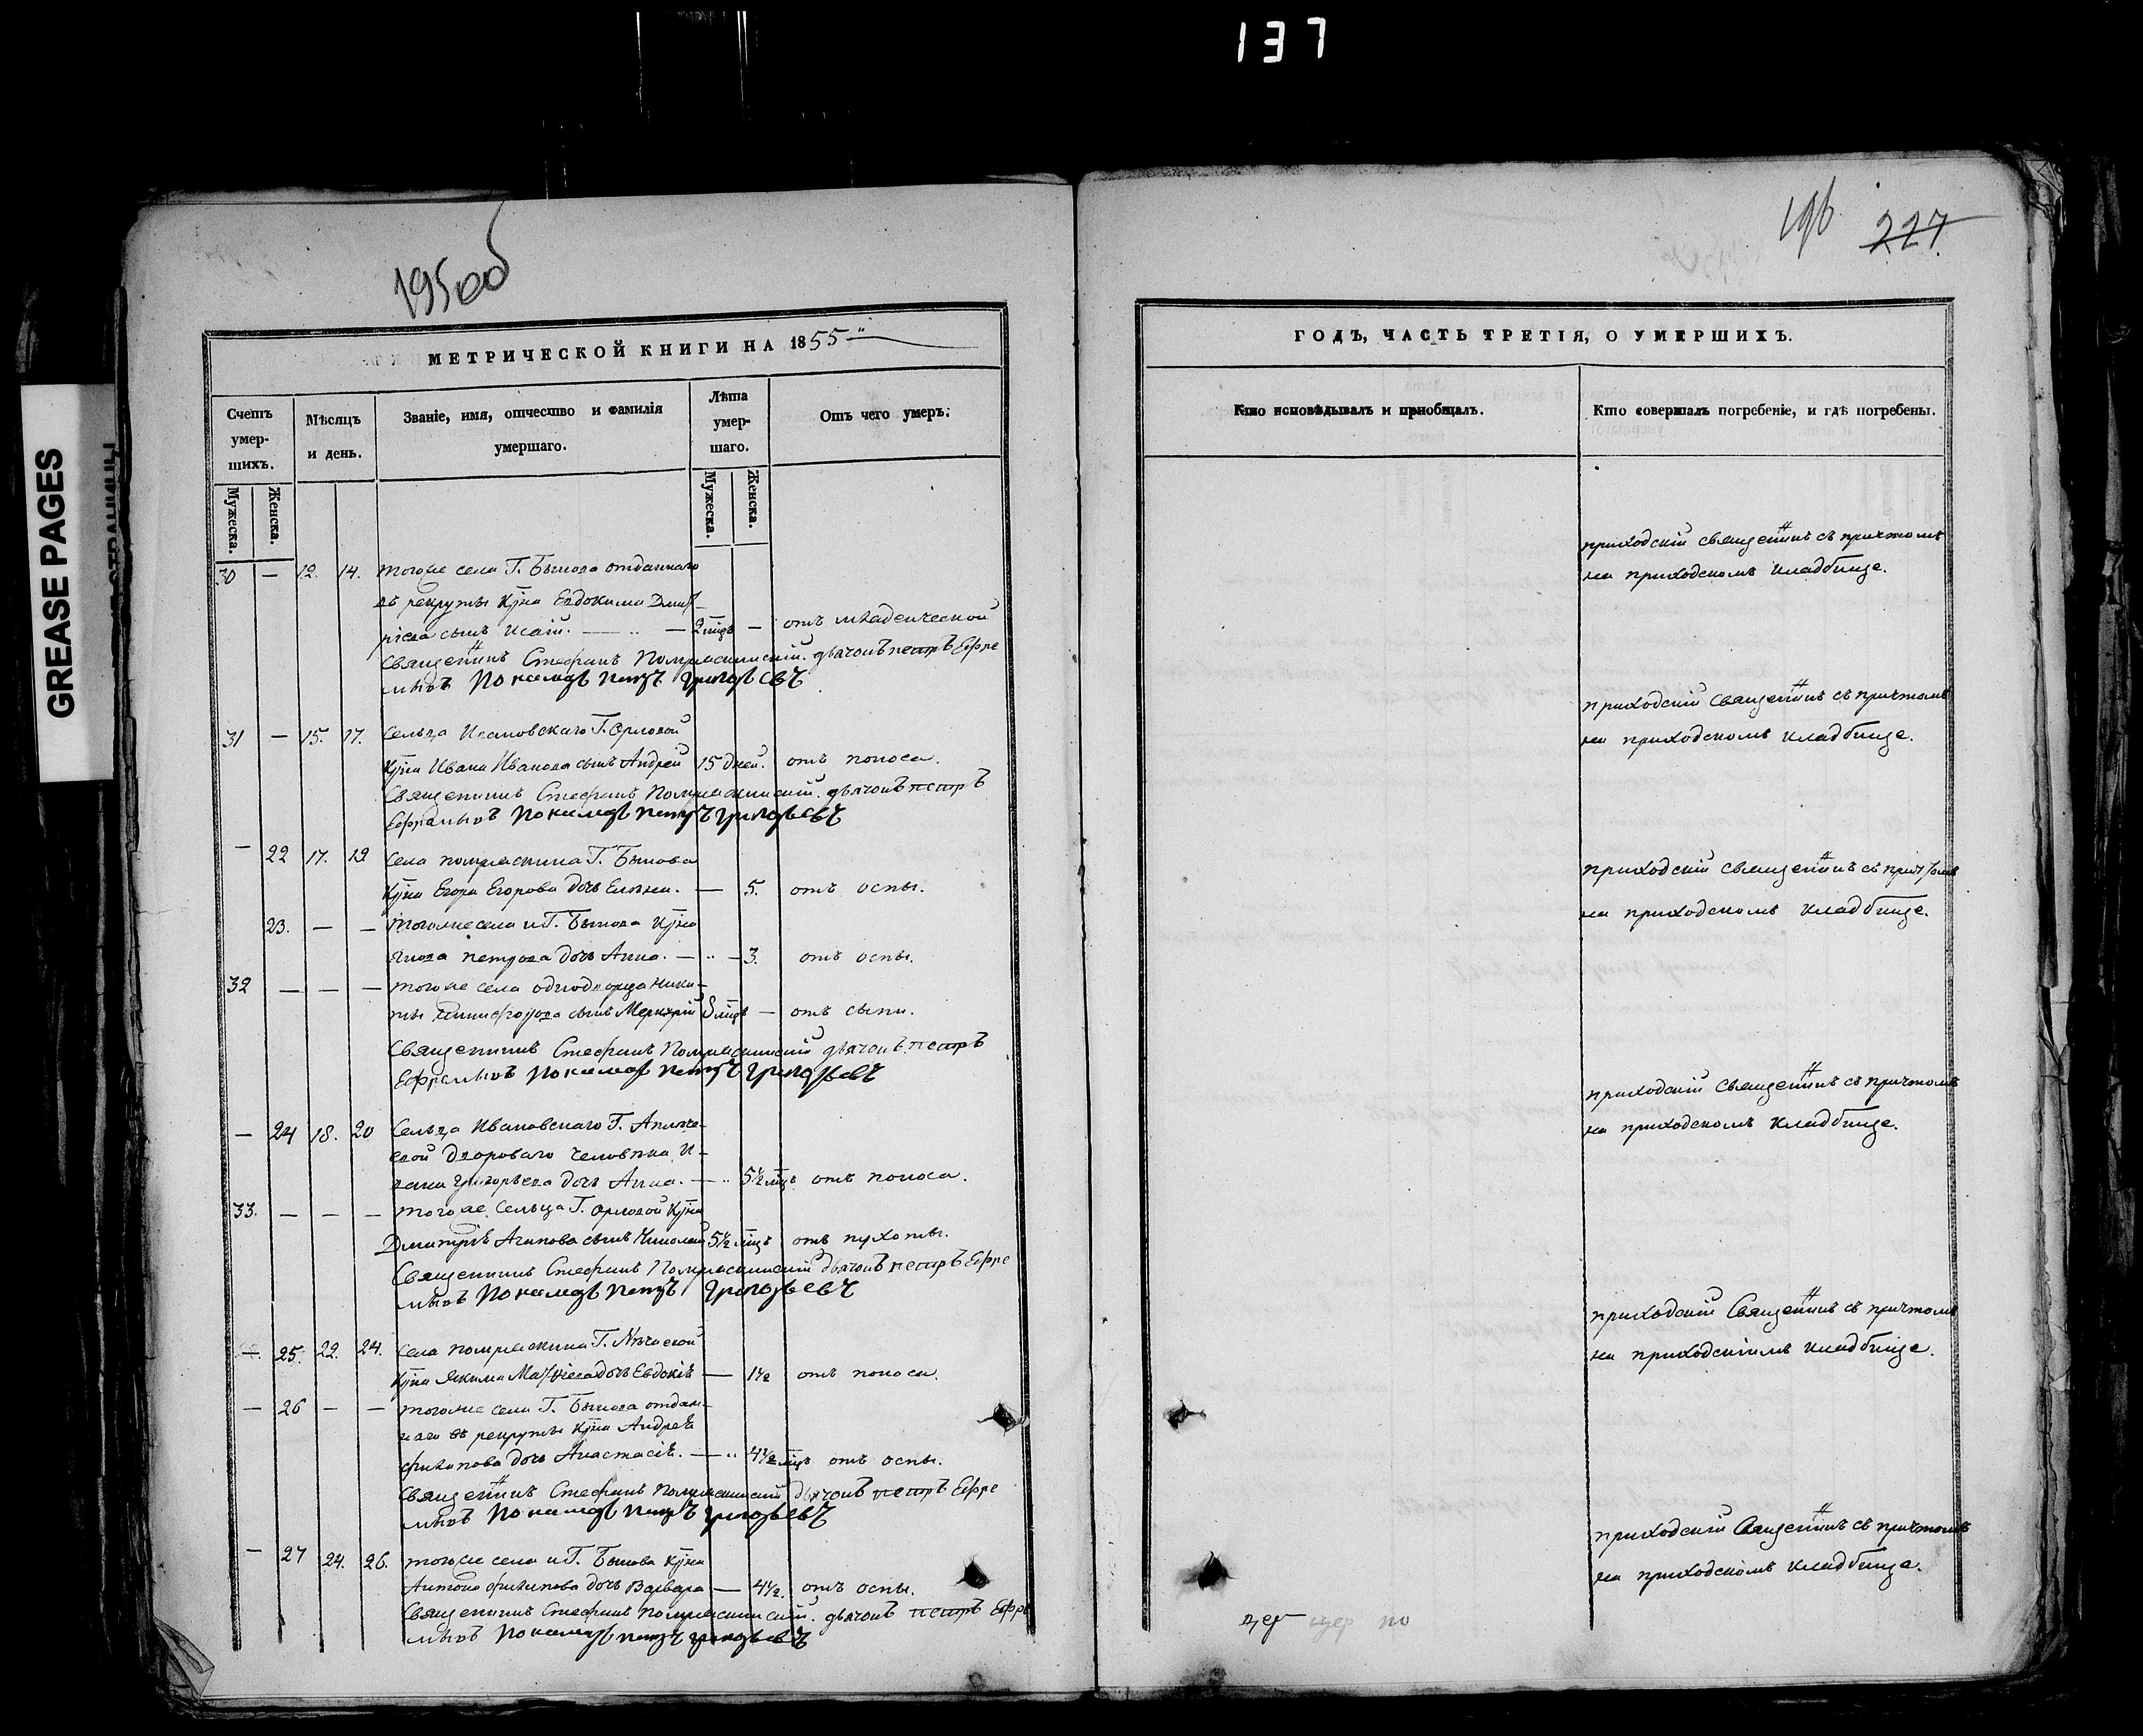 137
GREASE PAGES
195об
196 227
МЕТРИЧЕСКОЙ КНИГИ НА 1855
Счетъ умер- шихъ.
Мѣсяцъ и день.
Званіе, имя, отчество и фамилія умершаго.
Лѣта умер- шаго.
Отъ чего умеръ.
Мужеска. Женска. Мужеска. Женска.
30 — 12. 14. тогоже села Г. Бынова отданнаго
въ рекруты кр̃на Евдокима Дмит-
ріева сынъ Исаій. — 2 мц̃ъ — отъ младенческой
Священникъ Стефанъ дьячокъ Петръ Ефре
мовъ Пономарь Петръ Григорьевъ
31 — 15. 17. Сельца Г. Орловой
кр̃на Ивана Иванова сынъ Андрей 15 дней. отъ поноса.
Священникъ Стефанъ дьячокъ Петръ
Ефремовъ Пономарь Петръ Григорьевъ
— 22 17. 19 Села Г. Бынова
кр̃на Егора Егорова дочь Елена. — 5. отъ оспы.
23. — — тогоже села и Г. Бынова кр̃на
Якова Петрова дочь Анна. — 3. отъ оспы.
32 — — — тогоже села однодворца Ники-
ты сынъ Меркурій 8 мц̃ъ — отъ сыпи.
Священникъ Стефанъ дьячокъ Петръ
Ефремовъ Пономарь Петръ Григорьевъ
— 24 18. 20 Сельца Ивановскаго Г.
двороваго человѣка И-
вана Григорьева дочь Анна. — 5½ мц̃ъ отъ поноса.
33. — — — тогоже Сельца Г. Орловой кр̃на
Дмитрія Агапова сынъ Николай 5½ мц̃ъ отъ пухоты.
Священникъ Стефанъ дьячокъ Петръ Ефре
мовъ Пономарь Петръ Григорьевъ
— 25. 22. 24. Села Г.
кр̃на Якима Матвѣева дочь Евдокія — 1½ отъ поноса.
— 26 — — тогоже села Г. Бынова отдан-
наго въ рекруты кр̃на Андрея
Филипова дочь Анастасія. — 4½ мц̃ъ отъ оспы.
Священникъ Стефанъ дьячокъ Петръ Ефре
мовъ Пономарь Петръ Григорьевъ
— 27 24. 26. тогоже села и Г. Бынова кр̃на
Антона Филипова дочь Варвара — 4½. отъ оспы.
Священникъ Стефанъ дьячокъ Петръ Ефре
мовъ Пономарь Петръ Григорьевъ
ГОДЪ, ЧАСТЬ ТРЕТІЯ, О УМЕРШИХЪ.
Кто исповѣдывалъ и пріобщалъ.
Кто совершалъ погребеніе, и гдѣ погребены.
приходскій священникъ съ причтомъ
на приходскомъ кладбище.
приходскій священникъ съ причтомъ
на приходскомъ кладбище.
приходскій священникъ съ причтомъ
на приходскомъ кладбище.
приходскій священникъ съ причтомъ
на приходскомъ кладбище.
приходскій Священникъ съ причтомъ
на приходскомъ кладбище.
приходскій Священникъ съ причтомъ
на приходскомъ кладбище.
цер цер по